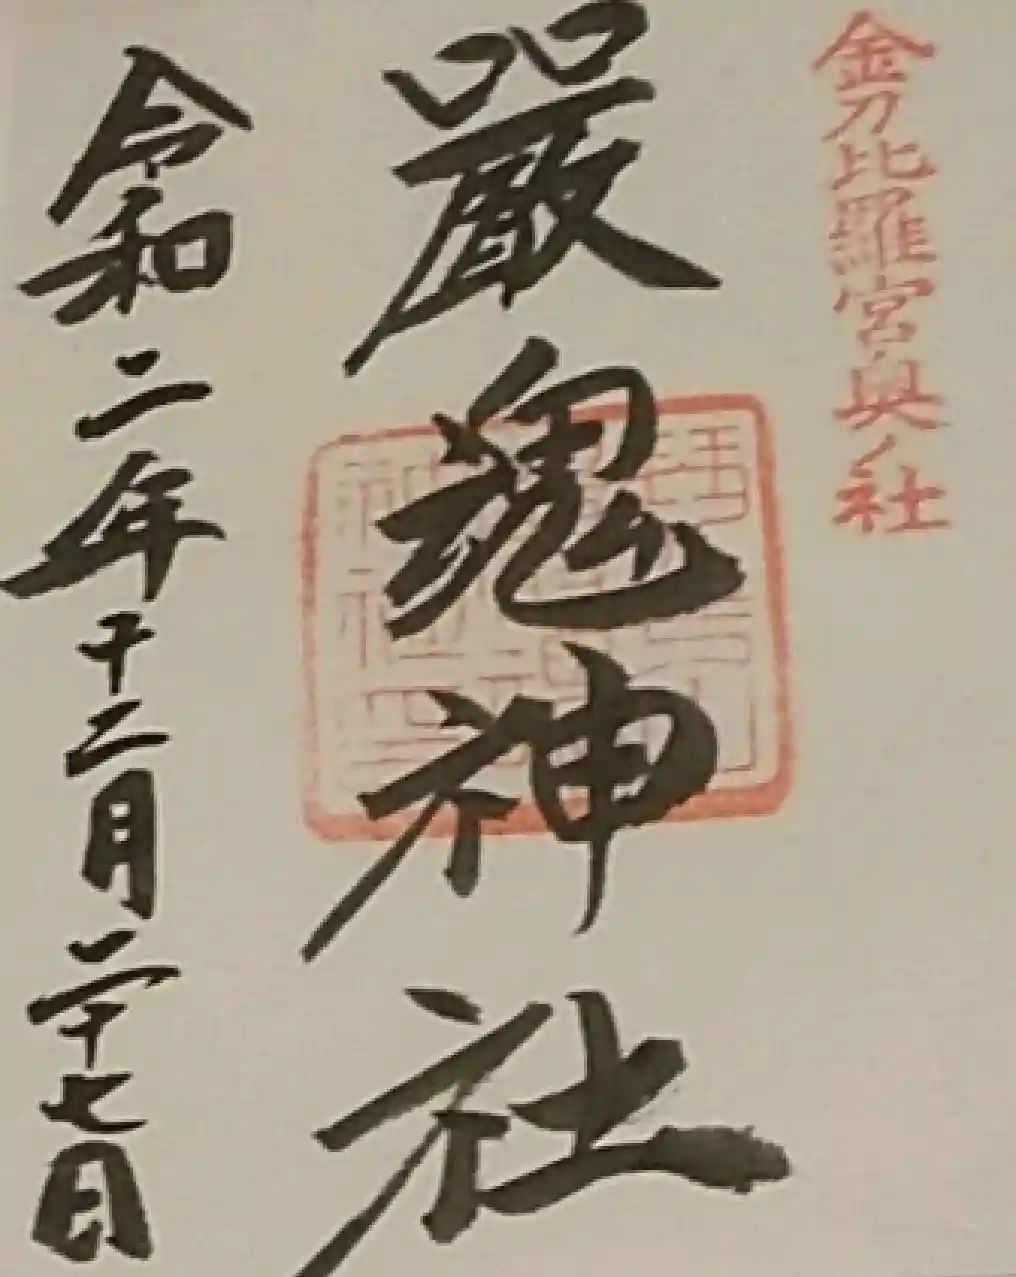 金刀比羅宮奥ノ社
厳魂神社
令和二年十二月二十七日